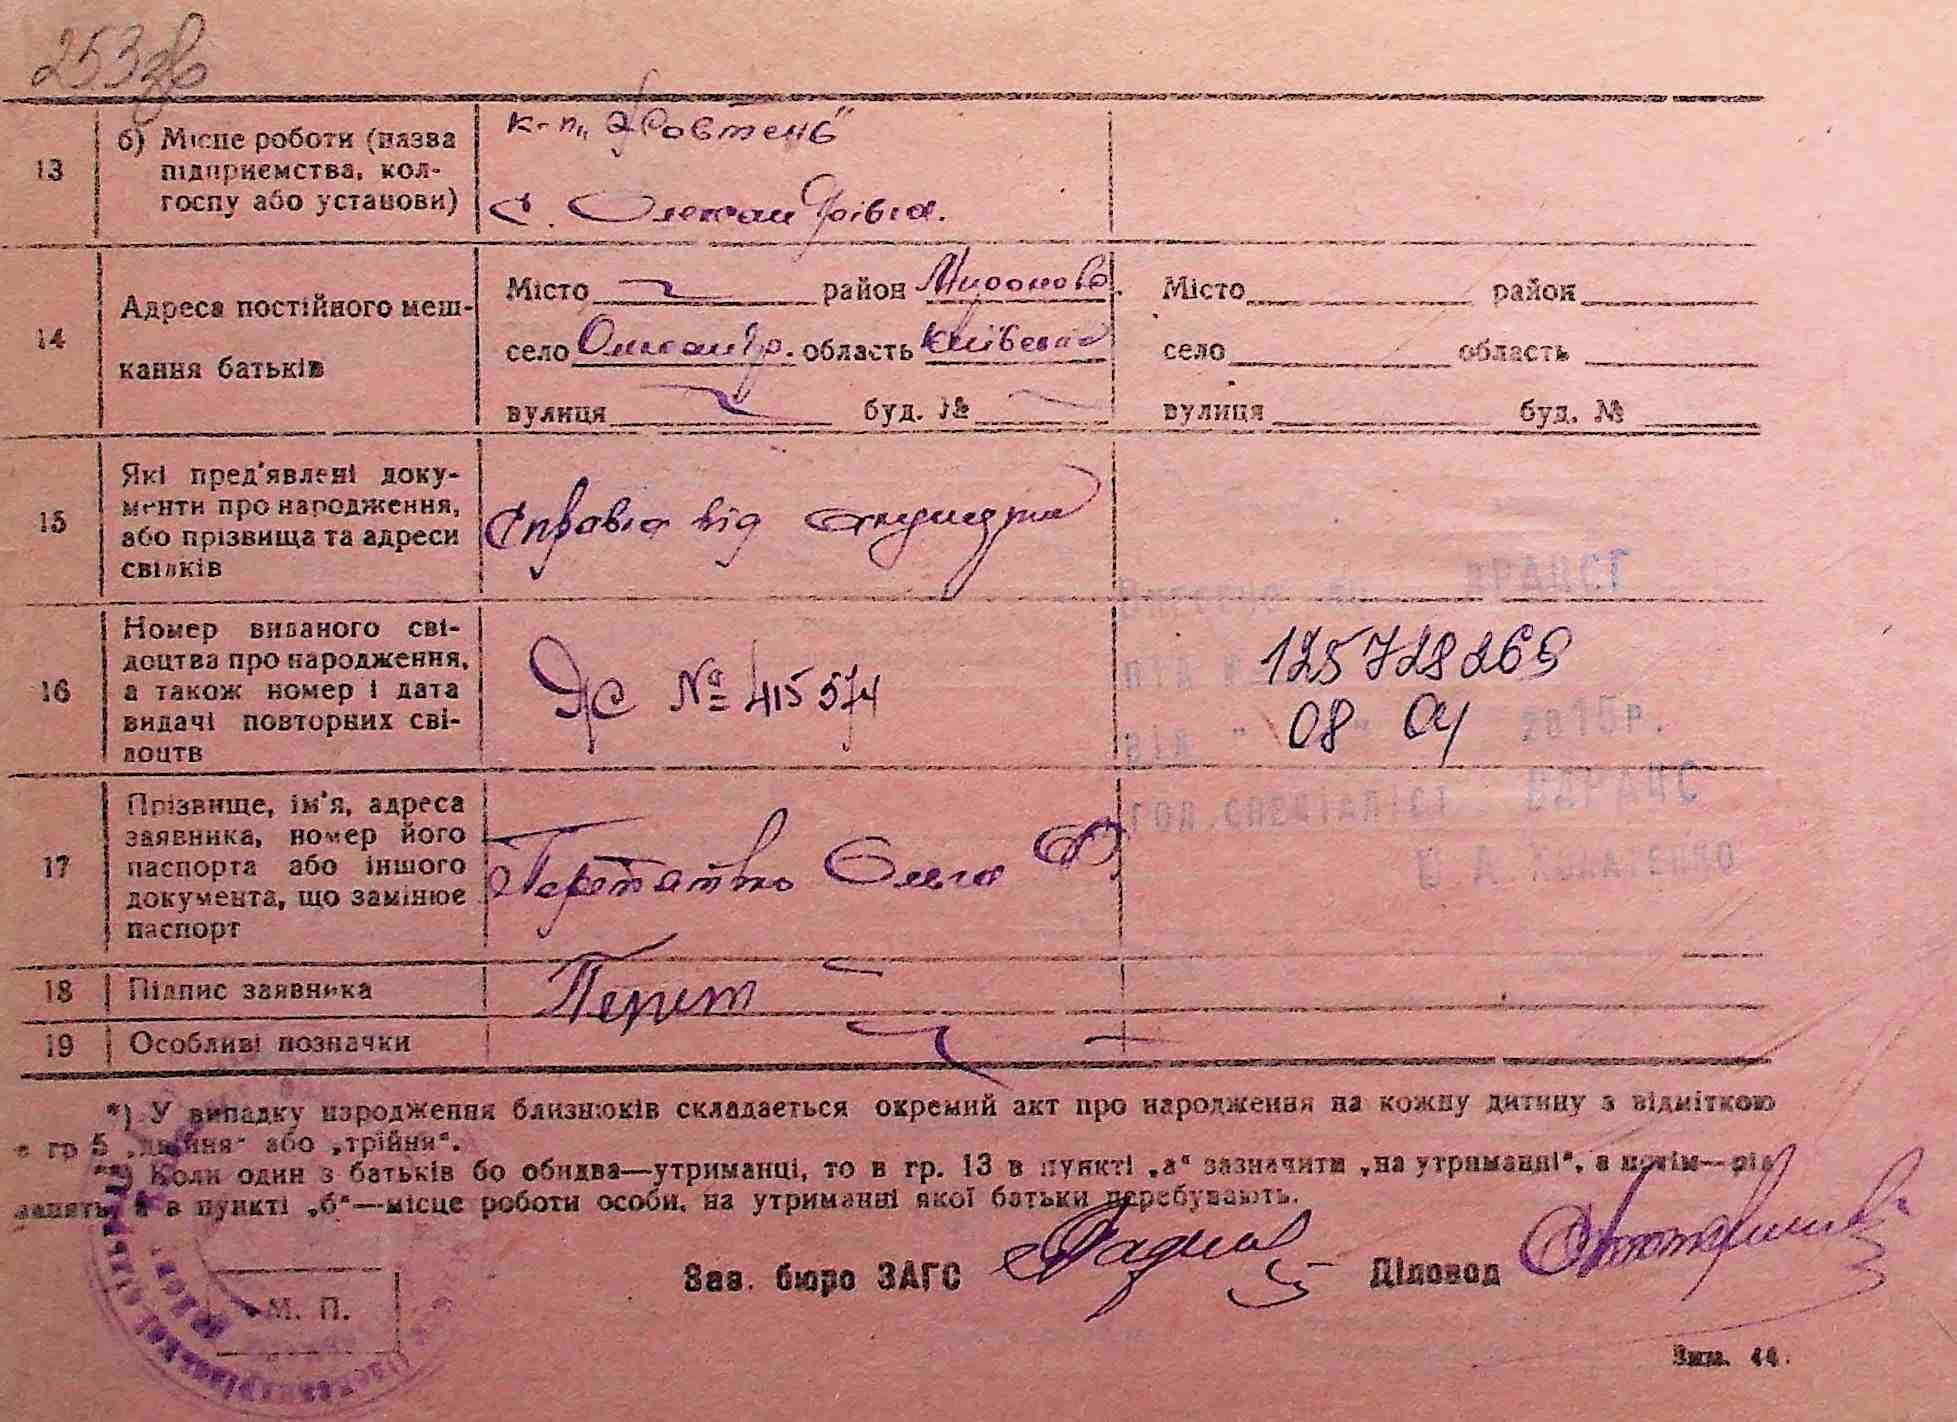 253зв
13
б) Місце роботи (назва підприємства, колгоспу або установи)
к-п „Жовтень"
с. Олександрівка.
14
Адреса постійного мешкання батьків
Місто район Миронів.
село Олександр. область Київська
вулиця буд. №
Місто район
село область
вулиця буд. №
15
Які пред'явлені документи про народження, або прізвища та адреси свідків
Справка від акушерки
16
Номер виданого свідоцтва про народження, а також номер і дата видачі повторних свідоцтв
ЯС № 415574
ДРАЦСГ
125728269
від " 08 " 04 2015р.
гол.спеціаліст ВДРАЦС
17
Прізвище, ім'я, адреса заявника, номер його паспорта або іншого документа, що замінює паспорт
Ольга
18
Підпис заявника
19
Особливі позначки
*) У випадку народження близнюків складається окремий акт про народження на кожну дитину з відміткою
в гр 5 „двійня" або „трійня".
**) Коли один з батьків бо обидва—утриманці, то в гр. 13 в пункті „а" зазначити „на утриманні", а потім— рід
занять, а в пункті „б"—місце роботи особи, на утриманні якої батьки перебувають.
Зав. бюро ЗАГС
Діловод
М. П.
Зам. 44.